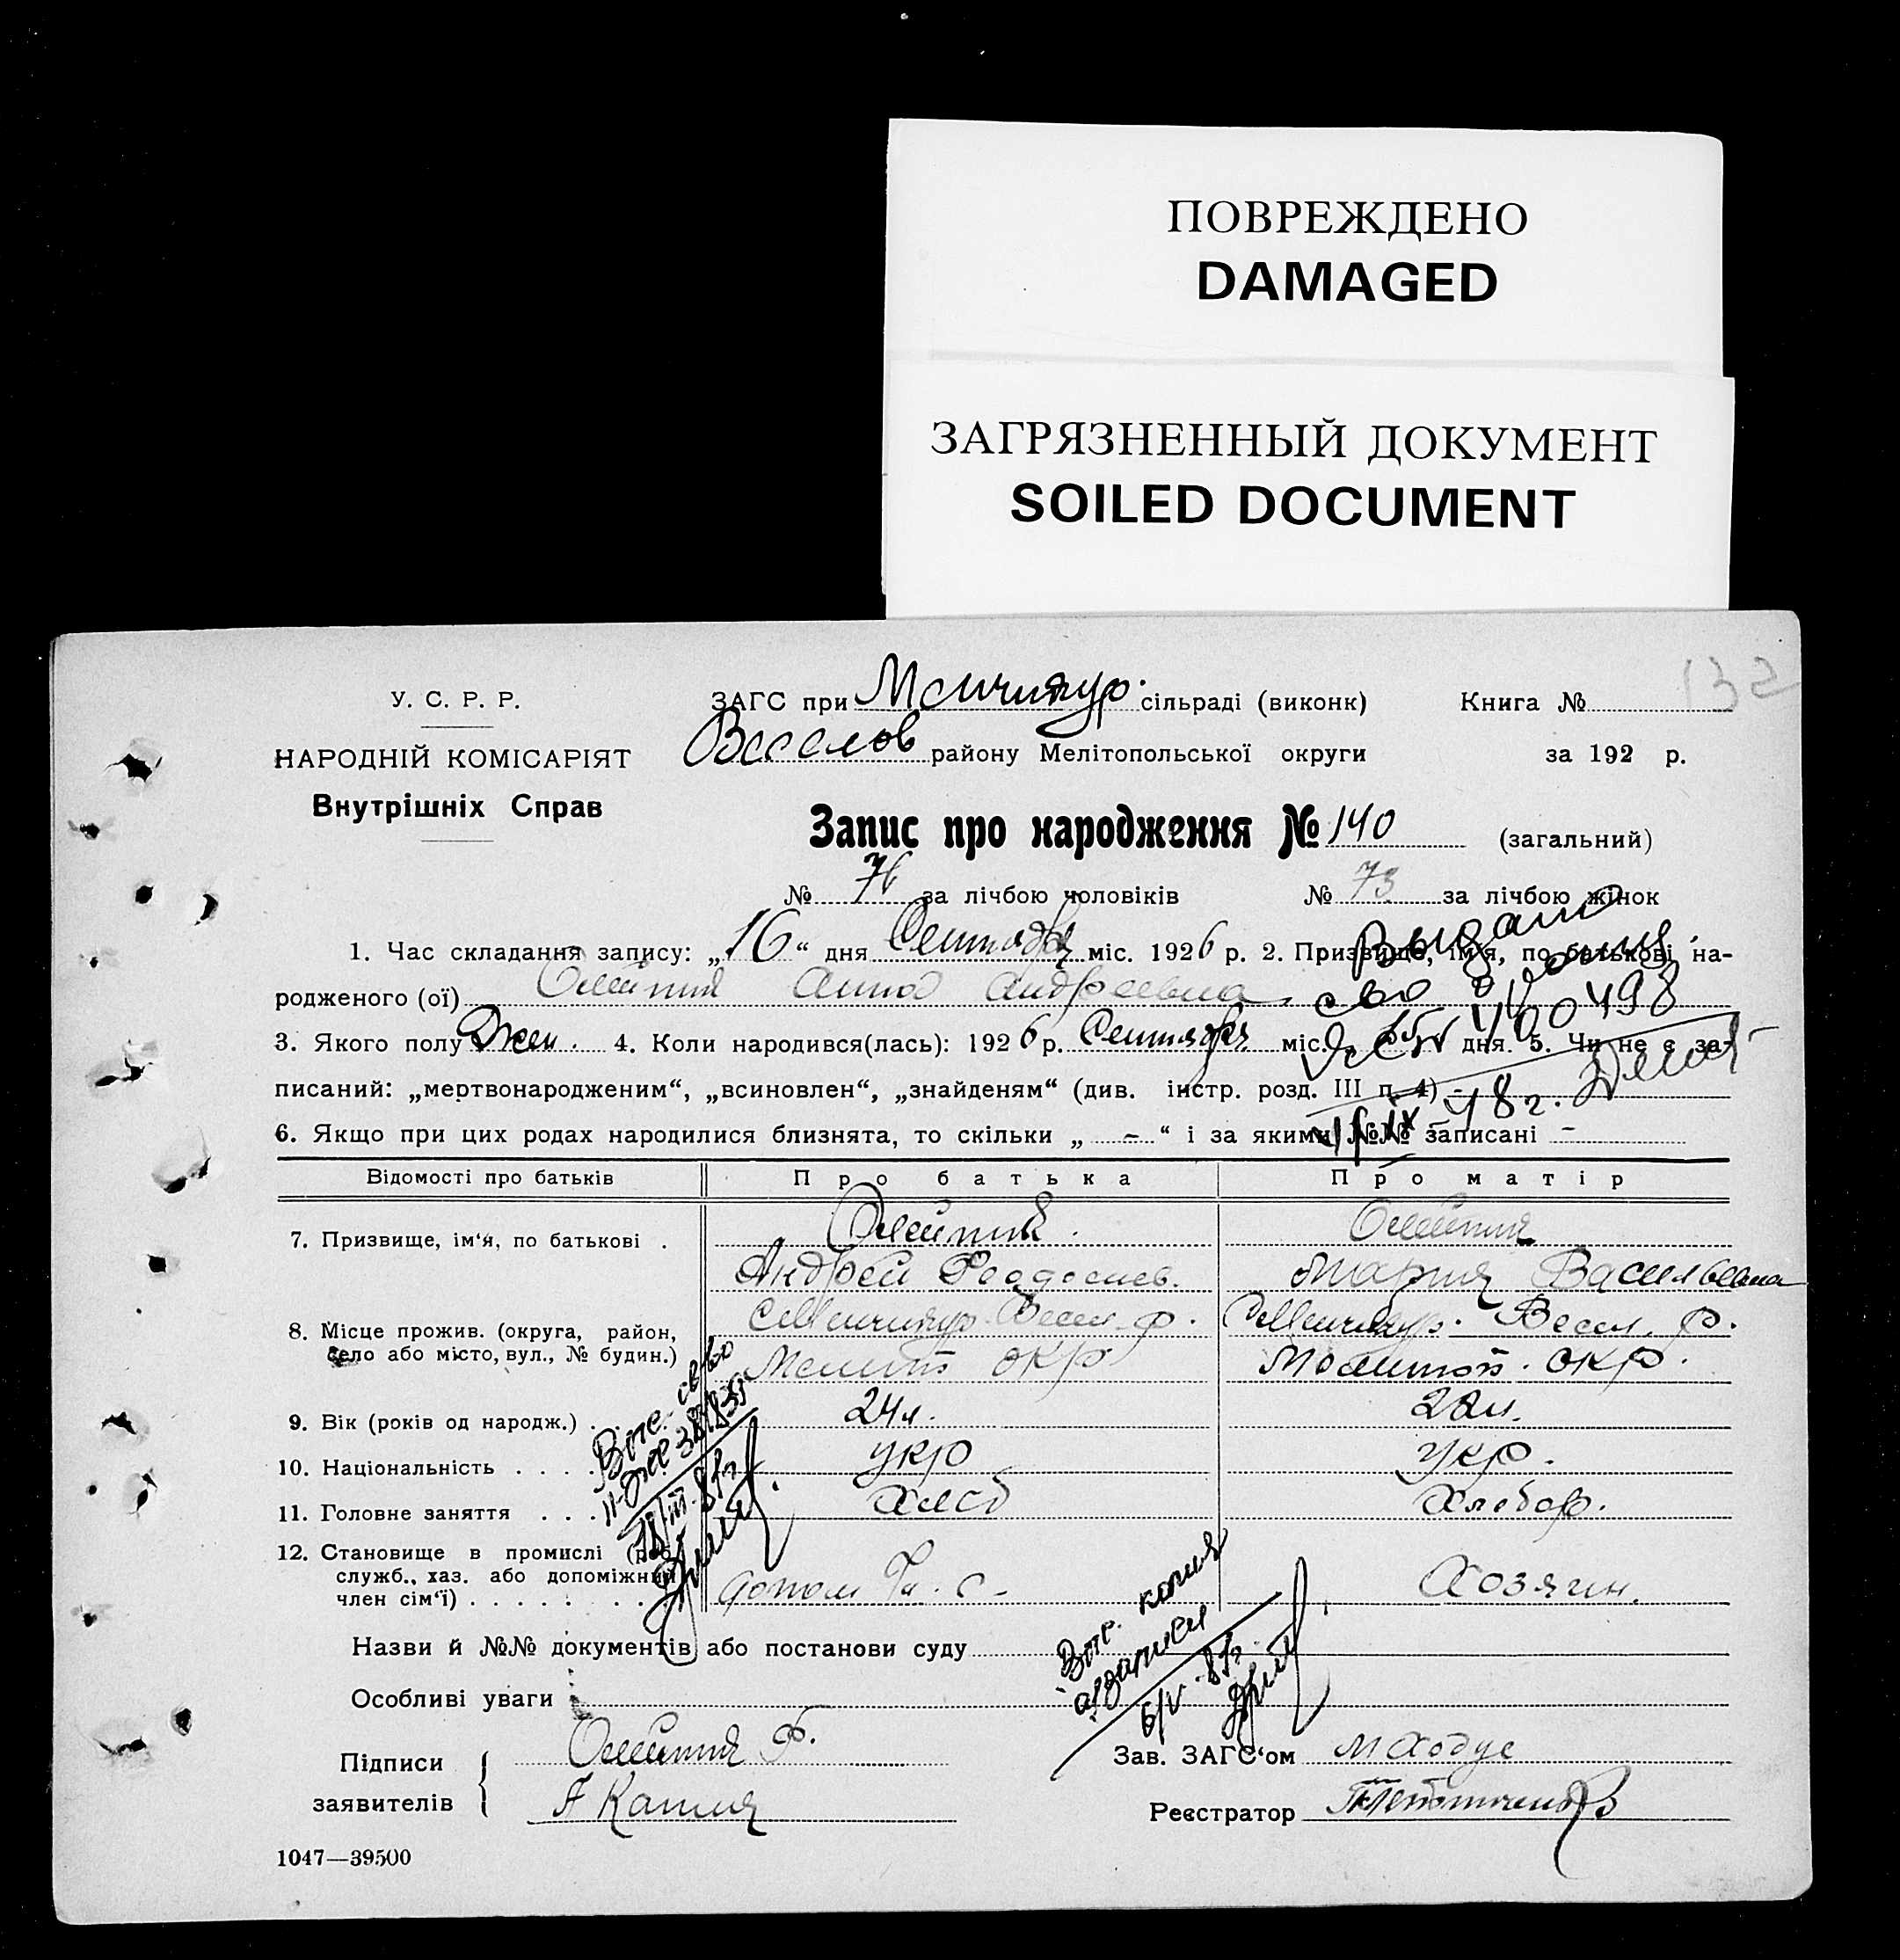 ПОВРЕЖДЕНО
DAMAGED
ЗАГРЯЗНЕННЫЙ ДОКУМЕНТ
SOILED DOCUMENT
132
У. С. Р. Р.
НАРОДНІЙ КОМІСАРІЯТ
Внутрішніх Справ
ЗАГС при Менчикур. сільраді (виконк) Книга №
Веселов району Мелітопольської округи за 192 р.
Запис про народження № 140 (загальний)
№ 76 за лічбою чоловіків № 73 за лічбою жінок
1. Час складання запису: „16“ дня Сентября міс. 1926 р. 2. Призвище, ім'я, по батькові на-
родженого (ої) Олейник Анна Андреевна
Выдано
сво
400498
48 г.
3. Якого полу Жен. 4. Коли народився(лась): 1926 р. Сентября міс. дня. 5. Чи не є за-
писаний: „мертвонародженим“, „всиновлен“, „знайденям“ (див. інстр. розд. III п. 4) -
6. Якщо при цих родах народилися близнята, то скільки „ - “ і за якими №№ записані -
Відомості про батьків Про батька Про матір
7. Призвище, ім'я, по батькові . Олейник. Олейник
Андрей Феодосиев. Мария Васильевна
8. Місце прожив. (округа, район, с Менчикур Весел. р. с Менчикур. Весел. р.
село або місто, вул., № будин.) Мелит окр Мелитоп. окр.
9. Вік (років од народж.) . 24 л. 22 л.
10. Національність . . . . укр укр.
11. Головне заняття . . . Хлеб Хлебор.
12. Становище в промислі (роб.
служб., хаз. або допоміжний
член сім'ї) . . . . . . . . допом Чл. с. Хозяин.
Вып. св-во
18/III-81г
Назви й №№ документів або постанови суду
Особливі уваги
Вып. копия
а/записи
6/V-81г.
Підписи Олейник Ф. Зав. ЗАГС'ом М Ходус
заявителів Реєстратор
1047—39500